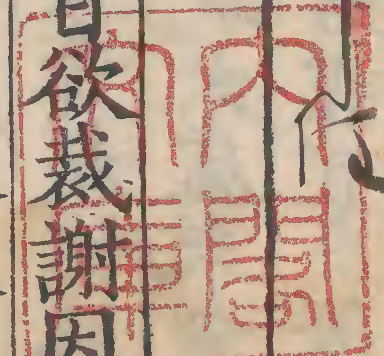 内閣
文庫
欲裁謝因